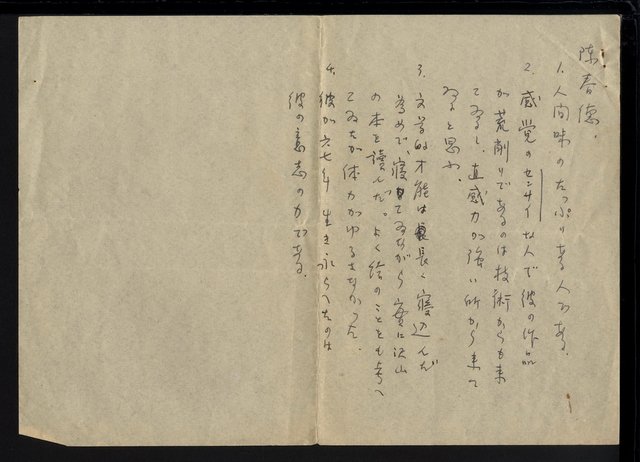 陳春德.
1. 人間味のたっぷりある人である.
2. 感覚のセンサイな人で彼の作品
が荒削りであるのは技術からも来
てゐるし、直感力が強い所から来て
ゐると思ふ.
3. 文学的才能は長く寝込んだ
為めで、寝てゐながら実に沢山
の本を読んだ。よく絵のことをも考へ
てゐたが体力がゆるさなかった.
4. 彼が六七年生き永らへたのは
彼の意志の力である.